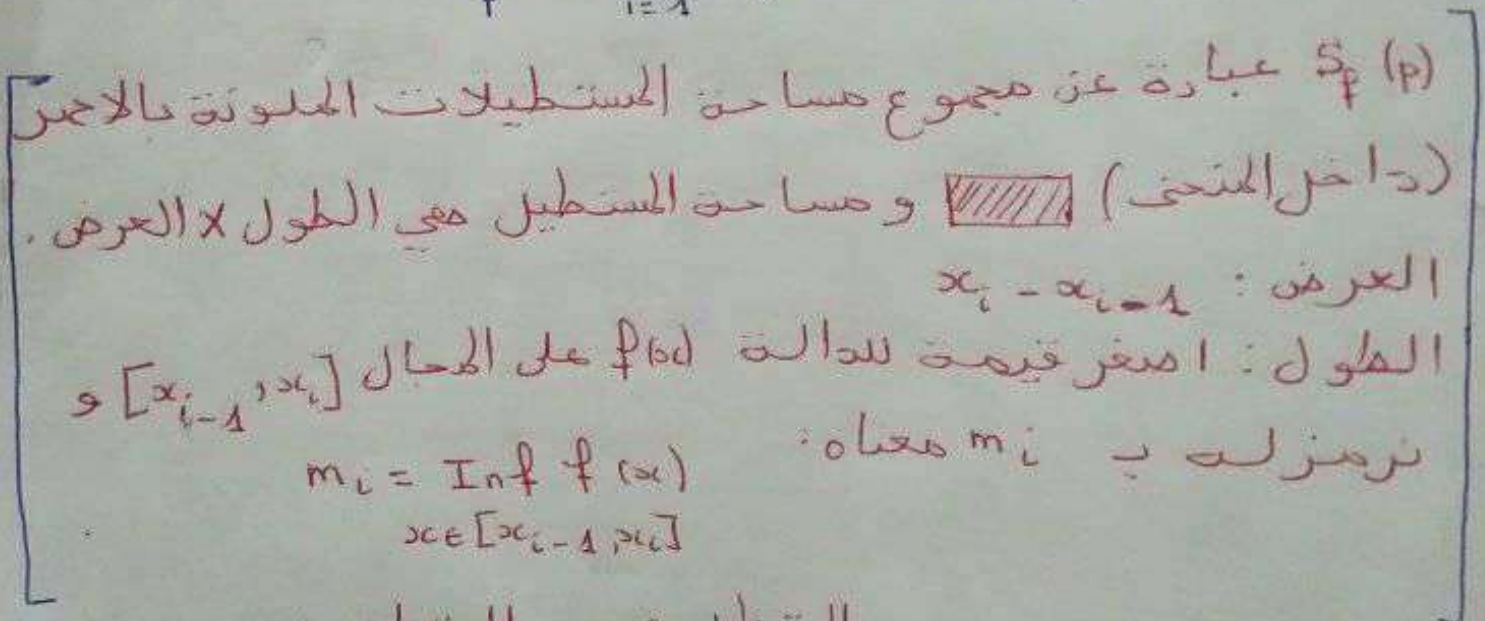 i=1
S_f (p) عبارة عن مجموع مساحة المستطيلات الملونة بالاحمر
(داخل المنحنى) و مساحة المستطيل هي الطول x العرض .
العرض : x_i - x_{i-1}
الطول : اصغر قيمة للدالة f(x) على المجال [x_{i-1}, x_i] و
نرمز له ب m_i معناه :
m_i = Inf f(x)
x∈[x_{i-1}, x_i]